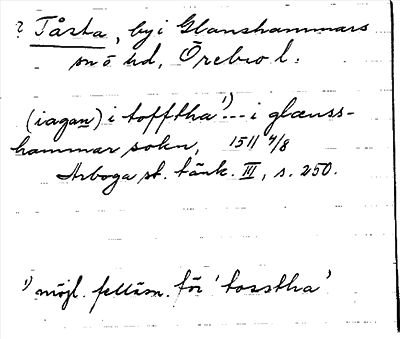 ? Tåsta, by i Glanshammars
sn o hd, Örebro l.
(iagan) i tofftha ¹) --- i glænss-
hammar sokn, 1511 4/8
Arboga st. tänk. III, s. 250.
¹) möjl. felläsn. för 'tosstha'